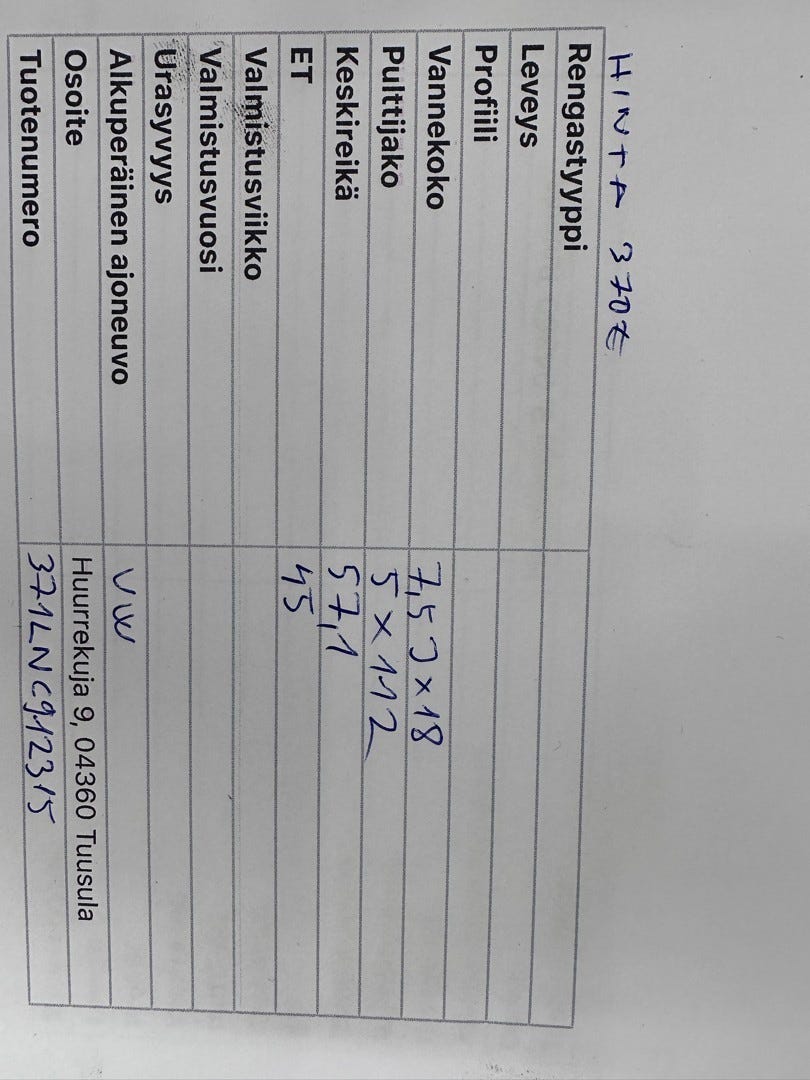 HINTA 370€
Rengastyyppi
Leveys
Profiili
Vannekoko 7,5J x 18
Pulttijako 5 x 112
Keskireikä 57,1
ET 45
Valmistusviikko
Valmistusvuosi
Urasyvyys
Alkuperäinen ajoneuvo VW
Osoite Huurrekuja 9, 04360 Tuusula
Tuotenumero 371LNC912315